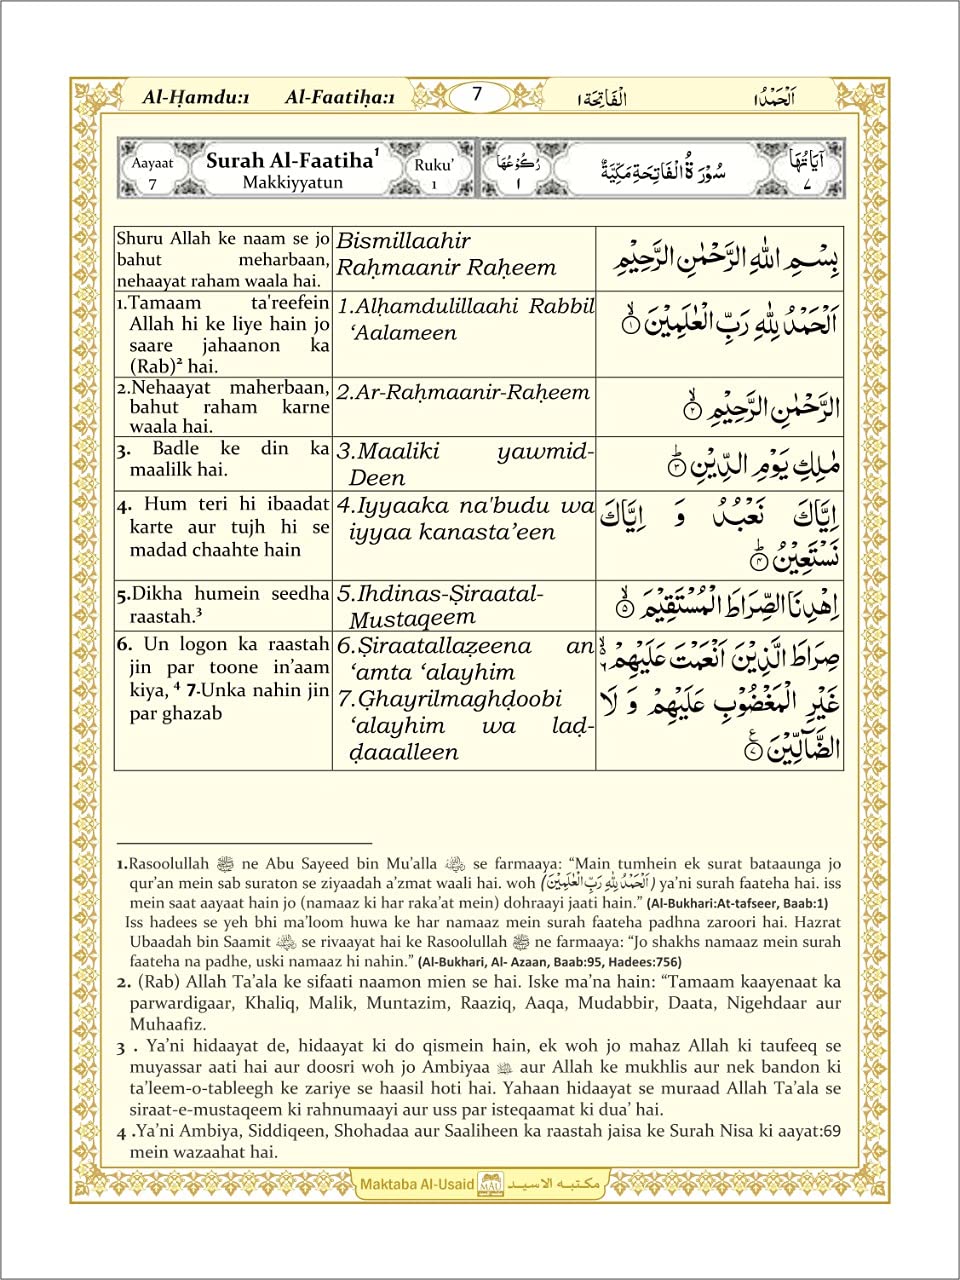 Al-Ḥamdu:1 Al-Faatiḥa:1 7 اَلْفَاتِحَة۱ اَلْحَمْدُ۱
Aayaat
7
Surah Al-Faatiha¹
Makkiyyatun
Ruku’
1
رُكُوْعُهَا
۱
سُوْرَةُ الْفَاتِحَةِ مَكِّيَّةٌ
اٰيَاتُهَا
۷
Shuru Allah ke naam se jo
bahut meharbaan,
nehaayat raham waala hai.
Bismillaahir
Raḥmaanir Raḥeem
بِسْمِ اللهِ الرَّحْمٰنِ الرَّحِيْمِ
1.Tamaam ta'reefein
Allah hi ke liye hain jo
saare jahaanon ka
(Rab)² hai.
1.Alḥamdulillaahi Rabbil
‘Aalameen
اَلْحَمْدُ لِلّٰهِ رَبِّ الْعٰلَمِيْنَ ۱
2.Nehaayat maherbaan,
bahut raham karne
waala hai.
2.Ar-Raḥmaanir-Raḥeem
الرَّحْمٰنِ الرَّحِيْمِ ۲
3. Badle ke din ka
maalilk hai.
3.Maaliki yawmid-
Deen
مٰلِكِ يَوْمِ الدِّيْنِ ۳
4. Hum teri hi ibaadat
karte aur tujh hi se
madad chaahte hain
4.Iyyaaka na'budu wa
iyyaa kanasta’een
اِيَّاكَ نَعْبُدُ وَ اِيَّاكَ
نَسْتَعِيْنُ ۴
5.Dikha humein seedha
raastah.³
5.Ihdinas-Ṣiraatal-
Mustaqeem
اِهْدِنَا الصِّرَاطَ الْمُسْتَقِيْمَ ۵
6. Un logon ka raastah
jin par toone in’aam
kiya, ⁴ 7-Unka nahin jin
par ghazab
6.Ṣiraatallaẓeena an
‘amta ‘alayhim
7.Ghayrilmaghḍoobi
‘alayhim wa laḍ-
ḍaaalleen
صِرَاطَ الَّذِيْنَ اَنْعَمْتَ عَلَيْهِمْ ۶
غَيْرِ الْمَغْضُوْبِ عَلَيْهِمْ وَ لَا
الضَّآلِّيْنَ ۷
1.Rasoolullah ﷺ ne Abu Sayeed bin Mu’alla se farmaaya: “Main tumhein ek surat bataaunga jo
qur’an mein sab suraton se ziyaadah a’zmat waali hai. woh (اَلْحَمْدُ لِلّٰهِ رَبِّ الْعٰلَمِيْنَ) ya’ni surah faateha hai. iss
mein saat aayaat hain jo (namaaz ki har raka’at mein) dohraayi jaati hain.” (Al-Bukhari:At-tafseer, Baab:1)
Iss hadees se yeh bhi ma’loom huwa ke har namaaz mein surah faateha padhna zaroori hai. Hazrat
Ubaadah bin Saamit se rivaayat hai ke Rasoolullah ﷺ ne farmaaya: “Jo shakhs namaaz mein surah
faateha na padhe, uski namaaz hi nahin.” (Al-Bukhari, Al- Azaan, Baab:95, Hadees:756)
2. (Rab) Allah Ta’ala ke sifaati naamon mien se hai. Iske ma’na hain: “Tamaam kaayenaat ka
parwardigaar, Khaliq, Malik, Muntazim, Raaziq, Aaqa, Mudabbir, Daata, Nigehdaar aur
Muhaafiz.
3 . Ya’ni hidaayat de, hidaayat ki do qismein hain, ek woh jo mahaz Allah ki taufeeq se
muyassar aati hai aur doosri woh jo Ambiyaa aur Allah ke mukhlis aur nek bandon ki
ta’leem-o-tableegh ke zariye se haasil hoti hai. Yahaan hidaayat se muraad Allah Ta’ala se
siraat-e-mustaqeem ki rahnumaayi aur uss par isteqaamat ki dua’ hai.
4 .Ya’ni Ambiya, Siddiqeen, Shohadaa aur Saaliheen ka raastah jaisa ke Surah Nisa ki aayat:69
mein wazaahat hai.
Maktaba Al-Usaid MAU مكتبه الاسيد